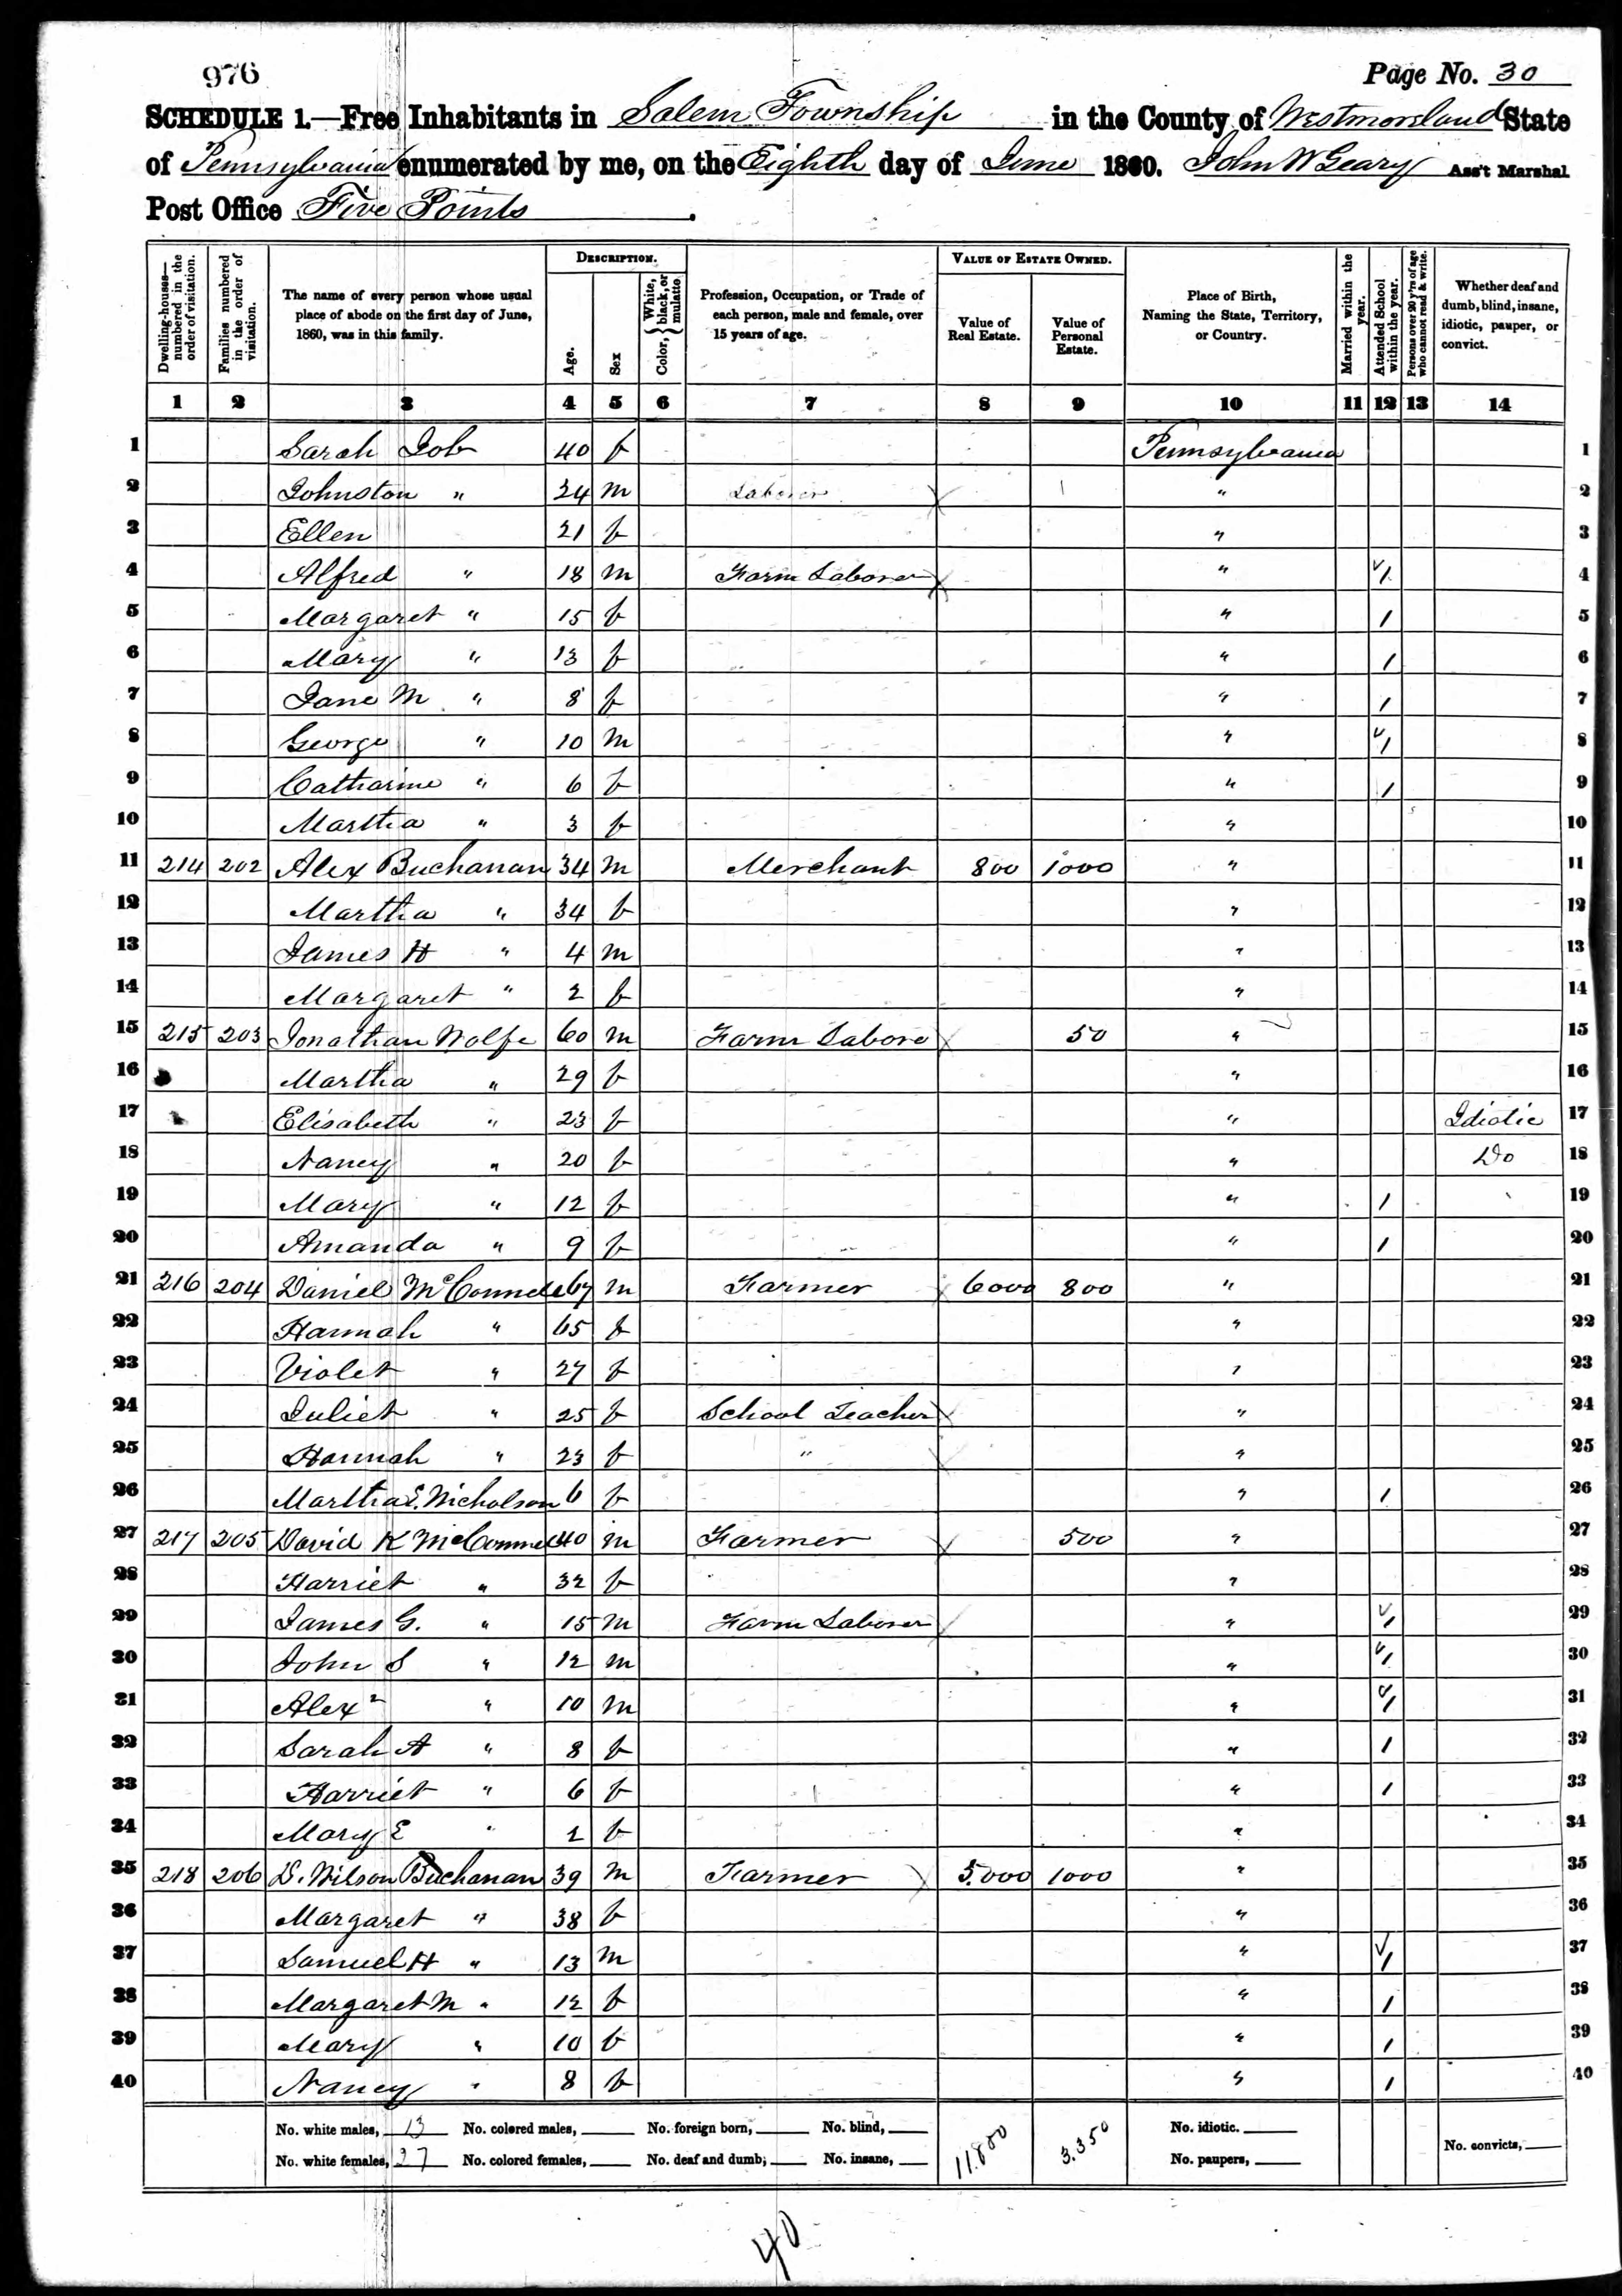 976
Page No. 30
SCHEDULE 1.—Free Inhabitants in Salem Township in the County of Westmoreland State
of Pennsylvania enumerated by me, on the Eighth day of June 1860. John W Geary Ass't Marshal
Post Office Five Points.
Dwelling-houses—numbered in the order of visitation. Families numbered in the order of visitation. The name of every person whose usual place of abode on the first day of June, 1860, was in this family. DESCRIPTION. Age. Sex Color, {White, black, or mulatto. Profession, Occupation, or Trade of each person, male and female, over 15 years of age. VALUE OF ESTATE OWNED. Value of Real Estate. Value of Personal Estate. Place of Birth, Naming the State, Territory, or Country. Married within the year. Attended School within the year. Persons over 20 y'rs of age who cannot read & write. Whether deaf and dumb, blind, insane, idiotic, pauper, or convict.
1 2 3 4 5 6 7 8 9 10 11 12 13 14
1 Sarah Job 40 f Pennsylvania 1
2 Johnston " 24 m Laborer " 2
3 Ellen 21 f " 3
4 Alfred " 18 m Farm Laborer " 1 4
5 Margaret " 15 f " 1 5
6 Mary " 13 f " 1 6
7 Jane M " 8 f " 1 7
8 George " 10 m " 1 8
9 Catharine " 6 f " 1 9
10 Martha " 3 f " 10
11 214 202 Alex Buchanan 34 m Merchant 800 1000 " 11
12 Martha " 34 f " 12
13 James H " 4 m " 13
14 Margaret " 2 f " 14
15 215 203 Jonathan Wolfe 60 m Farm Labore 50 " 15
16 Martha " 29 f " 16
17 Elisabeth " 23 f " Idiotic 17
18 Nancy " 20 f " Do 18
19 Mary " 12 f " 1 19
20 Amanda " 9 f " 1 20
21 216 204 Daniel McConnell 67 m Farmer 6000 800 " 21
22 Hannah " 65 f " 22
23 Violet " 27 f " 23
24 Juliet " 25 f School Teacher " 24
25 Hannah " 23 f " " 25
26 Martha E. Nicholson 6 f " 1 26
27 217 205 David K McConnel 40 m Farmer 500 " 27
28 Harriet " 32 f " 28
29 James G. " 15 m Farm Laborer " 1 29
30 John S " 12 m " 1 30
31 Alexr " 10 m " 1 31
32 Sarah A " 8 f " 1 32
33 Harriet " 6 f " 1 33
34 Mary E " 2 f " 34
35 218 206 D. Wilson Buchanan 39 m Farmer 5.000 1000 " 35
36 Margaret " 38 f " 36
37 Samuel H " 13 m " 1 37
38 Margaret M " 12 f " 1 38
39 Mary " 10 f " 1 39
40 Nancy " 8 f " 1 40
No. white males, 13 No. colored males, No. foreign born, No. blind, 11.800 3.350 No. idiotic. No. convicts,
No. white females, 27 No. colored females, No. deaf and dumb, No. insane, No. paupers,
40